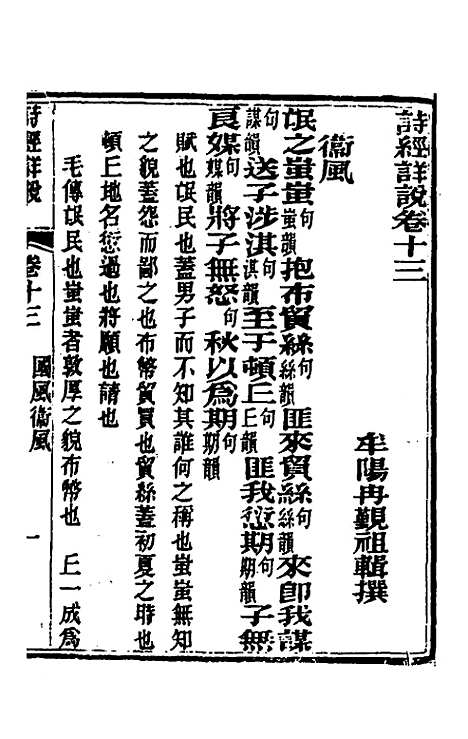 詩經詳說卷十三
牟陽冉覲祖輯撰
衞風
氓之蚩蚩句蚩韻抱布貿絲句絲韻匪來貿絲句絲韻來卽我謀
句謀韻送子涉淇句淇韻至于頓丘句丘韻匪我愆期句期韻子無
良媒句媒韻將子無怒句秋以爲期句期韻
賦也氓民也蓋男子而不知其誰何之稱也蚩蚩無知
之貌蓋怨而鄙之也布幣貿買也貿絲蓋初夏之時也
頓丘地名愆過也將願也請也
毛傳氓民也蚩蚩者敦厚之貌布幣也 丘一成爲
詩經詳說 卷十三 國風衞風 一